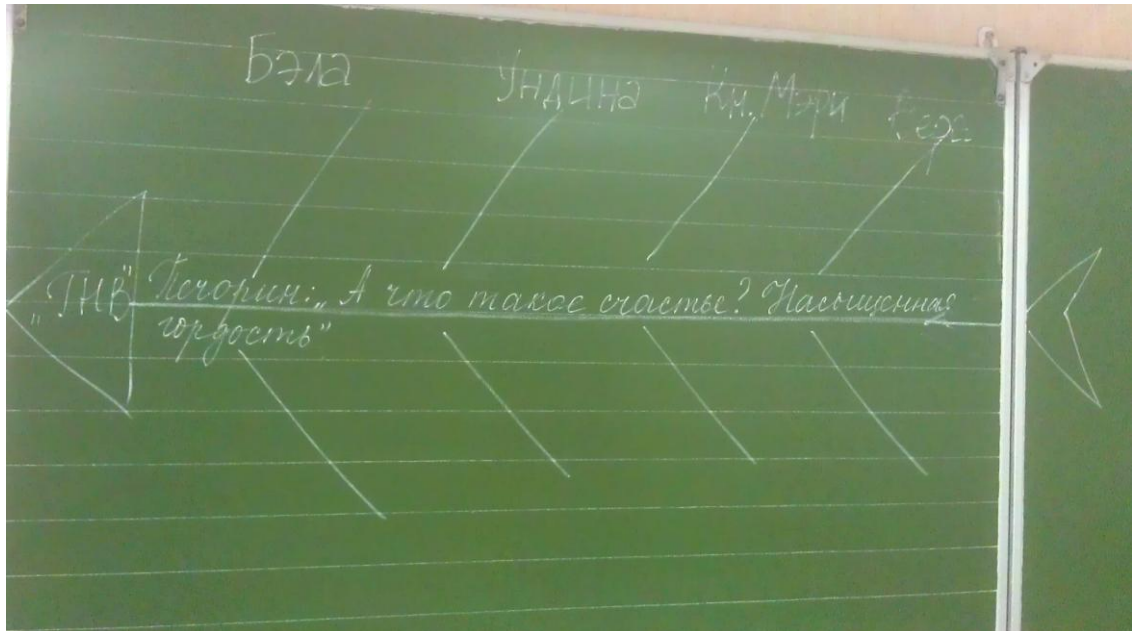 Бэла Ундина Кн. Мэри Вера
„ГНВ" Печорин: „А что такое счастье? Насыщенная
гордость"